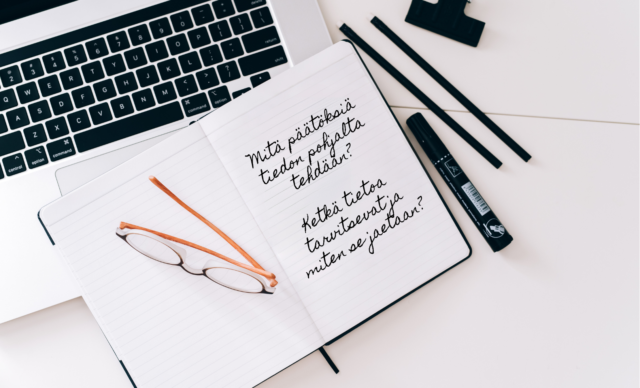 Mitä päätöksiä
tiedon pohjalta
tehdään?
Ketkä tietoa
tarvitsevat ja
miten se jaetaan?